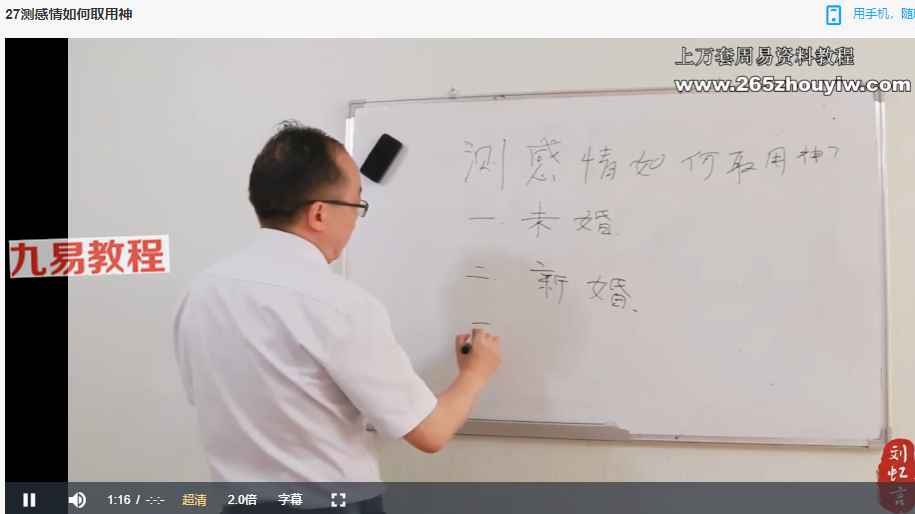 27测感情如何取用神
用手机，随
上万套周易资料教程
www.265zhouyiw.com
测感情如何取用神?
一.未婚.
二.新婚.
九易教程
刘虹言
1:16 / -:-:-
超清
2.0倍
字幕